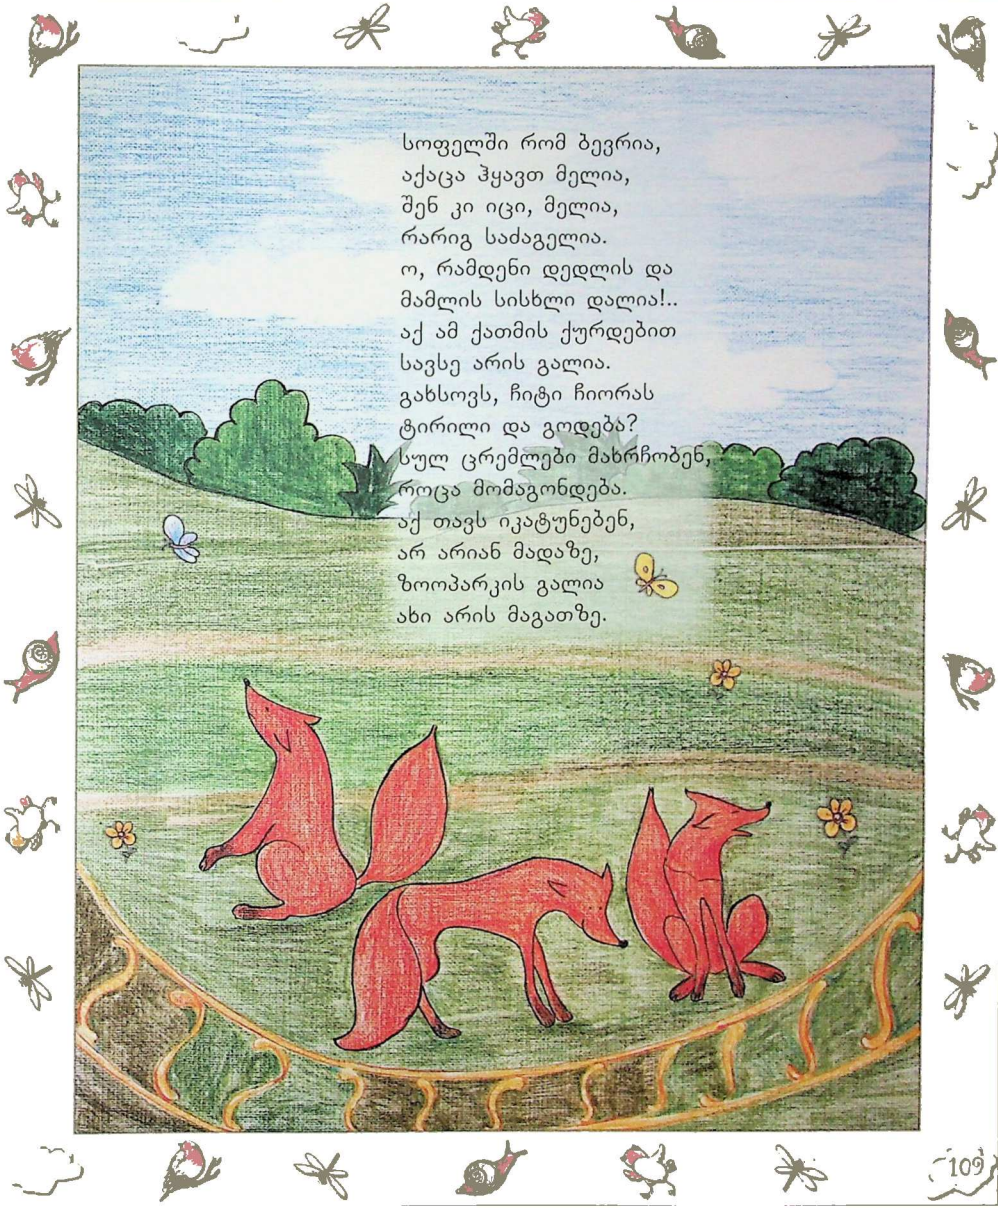 სოფელში რომ ბევრია,
აქაცა ჰყავთ მელია,
შენ კი იცი, მელია,
რარიგ საძაგელია.
ო, რამდენი დედლის და
მამლის სისხლი დალია!..
აქ ამ ქათმის ქურდებით
სავსე არის გალია.
გახსოვს, ჩიტი ჩიორას
ტირილი და გოდება?
სულ ცრემლები მახრჩობენ,
როცა მომაგონდება.
აქ თავს იკატუნებენ,
არ არიან მადაზე,
ზოოპარკის გალია
ახი არის მაგათზე.
109